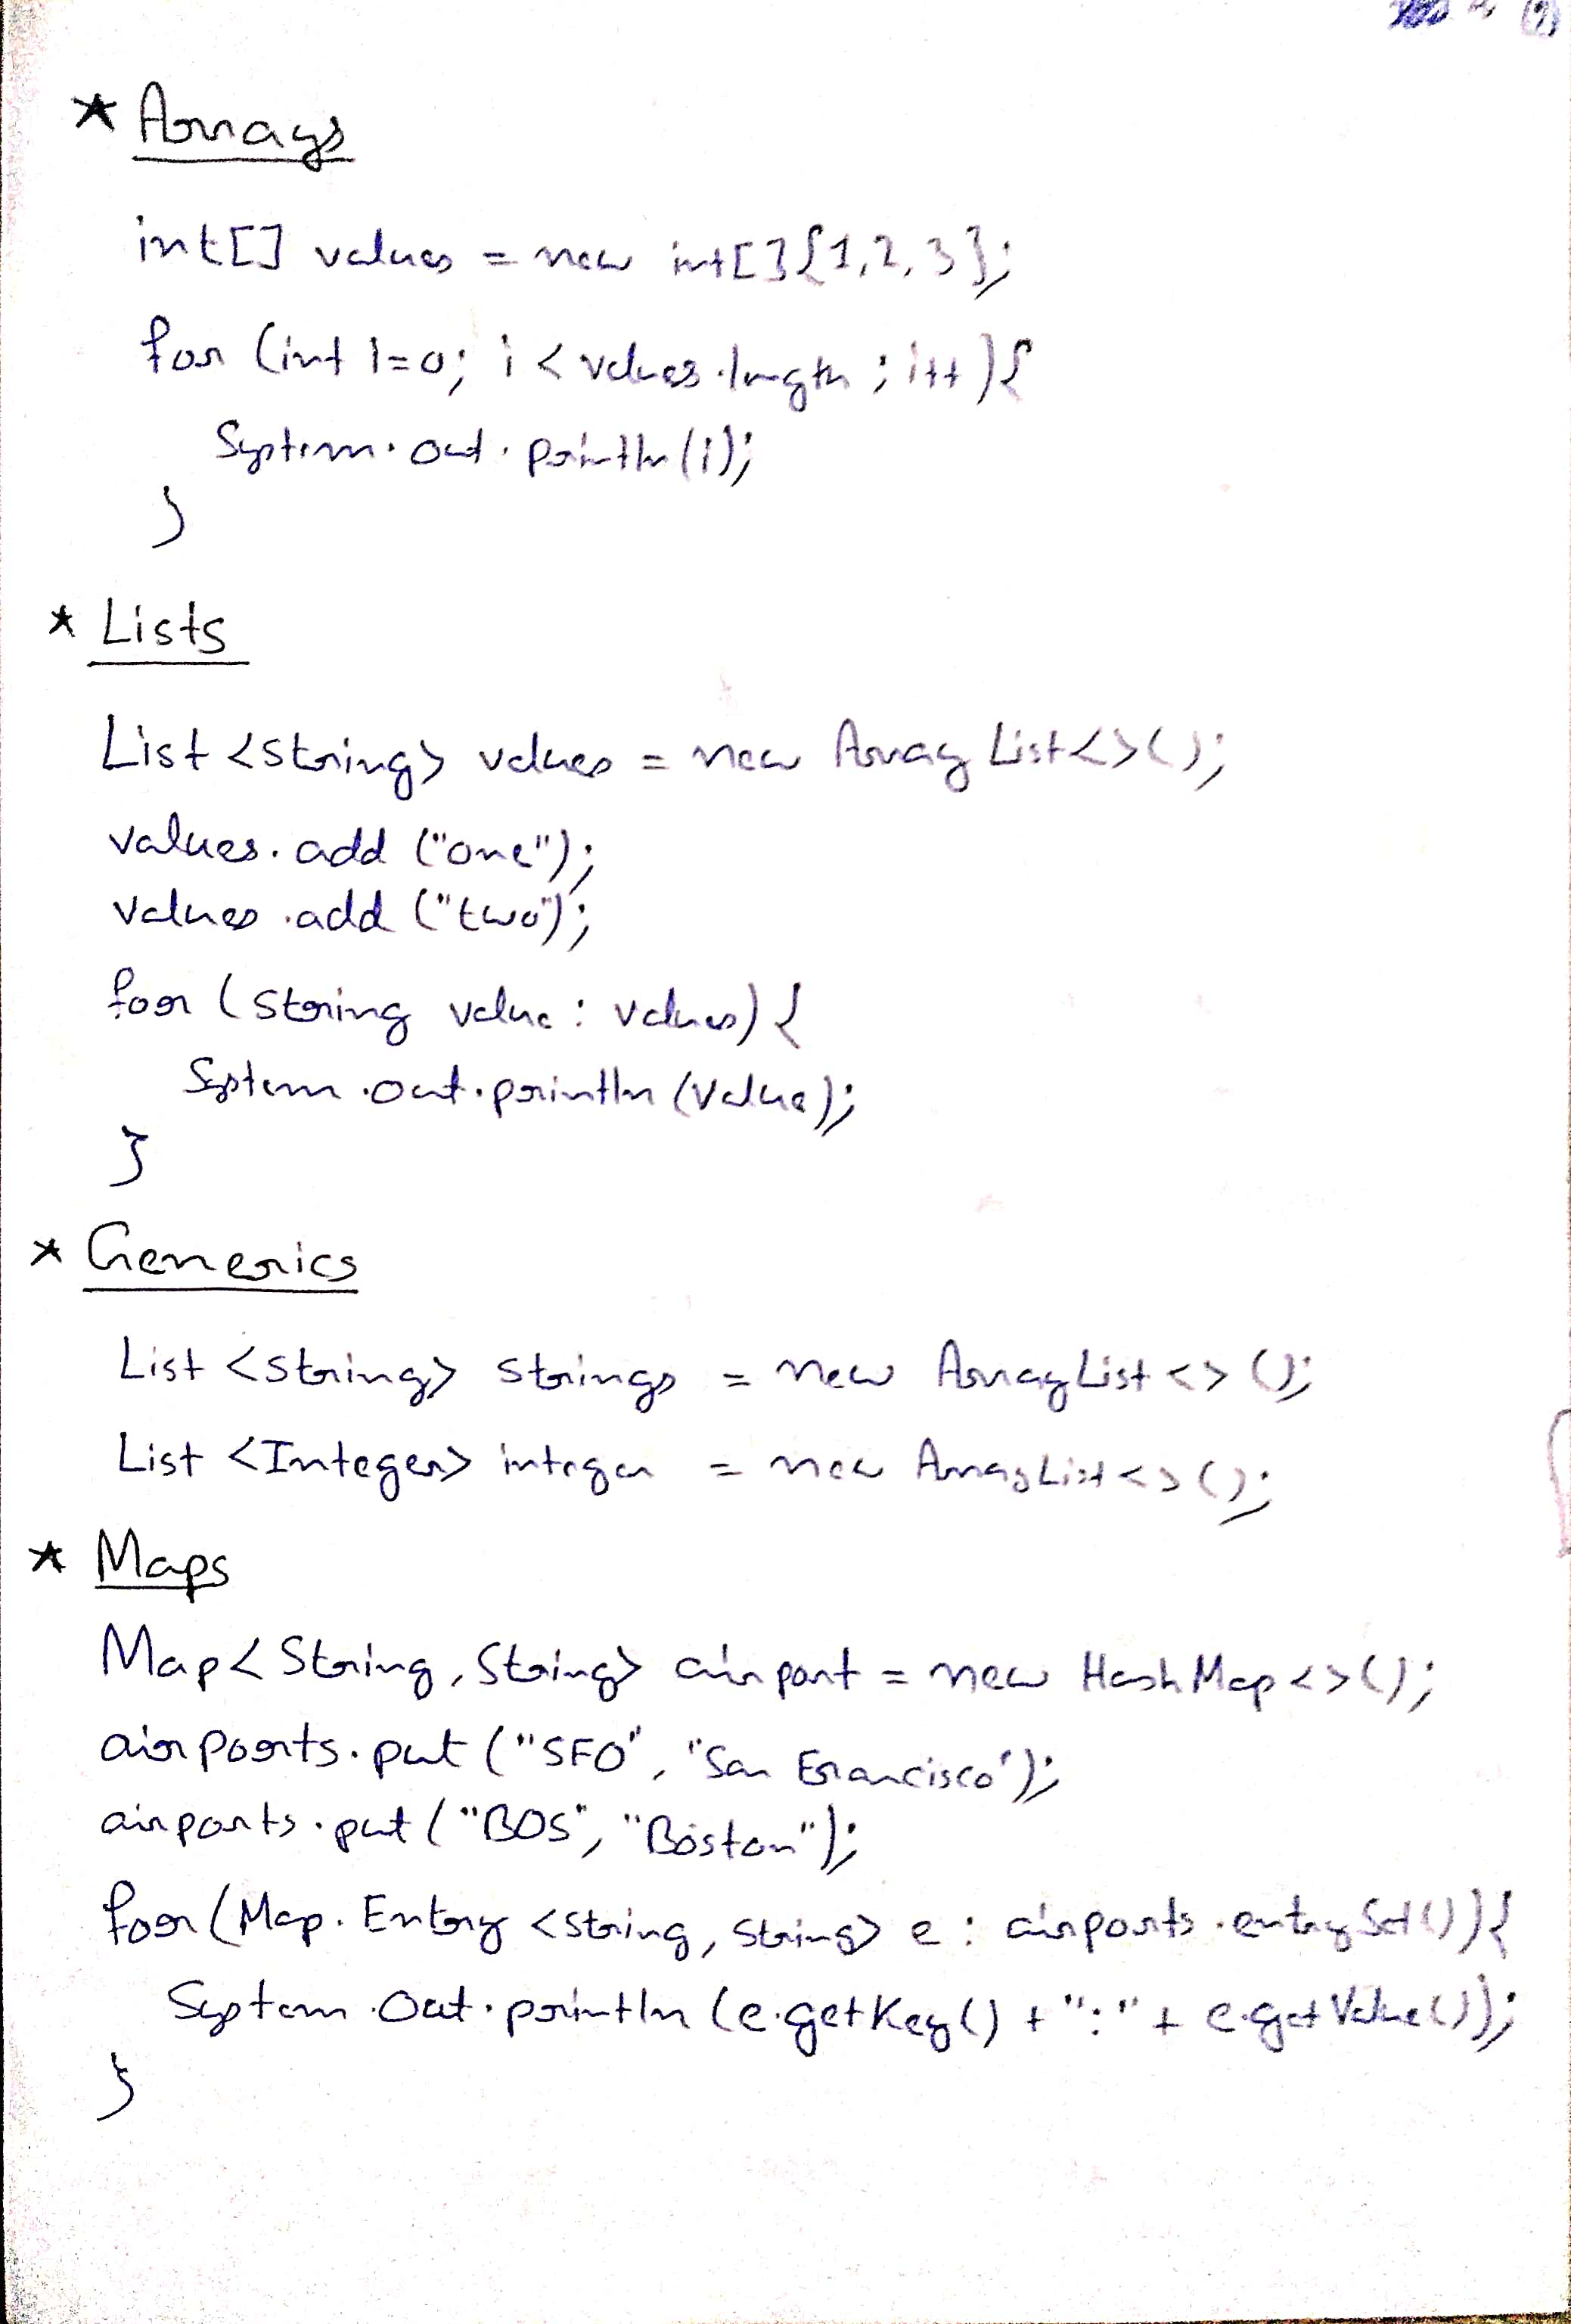 * Arrays
int[] values = new int[]{1,2,3};
for (int i=0; i < values.length; i++){
System.out.println(i);
}
* Lists
List <String> values = new ArrayList<>();
values.add ("one");
values.add ("two");
for (String value : values) {
System.out.println (value);
}
* Generics
List <String> strings = new ArrayList <> ();
List <Integer> integer = new ArrayList <> ();
* Maps
Map< String, String> airport = new HashMap <>();
airports.put ("SFO", "San Francisco");
airports.put ("BOS", "Boston");
for (Map.Entry <String, String> e : airports.entrySet()){
System.out.println (e.getKey() + ":" + e.getValue());
}